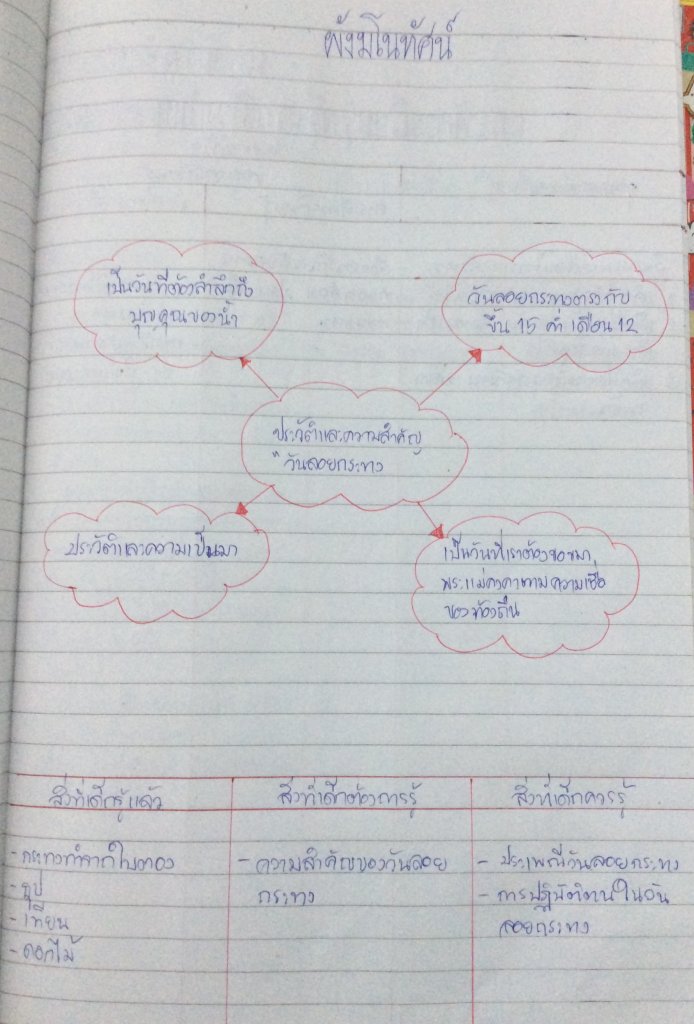 ผังมโนทัศน์
เป็นวันที่ต้องลำลึกถึง
บุญคุณของน้ำ
วันลอยกระทงตรงกับ
ขึ้น 15 ค่ำ เดือน 12
ประวัติและความสำคัญ
"วันลอยกระทง
ประวัติและความเป็นมา
เป็นวันที่เราต้องขอขมา
พระแม่คงคาตามความเชื่อ
ของท้องถิ่น
สิ่งที่เด็กรู้แล้ว
สิ่งที่เด็กต้องการรู้
สิ่งที่เด็กควรรู้
- กระทงทำจากใบตอง
- ธูป
- เทียน
- ดอกไม้
- ความสำคัญของวันลอย
กระทง
- ประเพณีวันลอยกระทง
- การปฏิบัติตนในวัน
ลอยกระทง